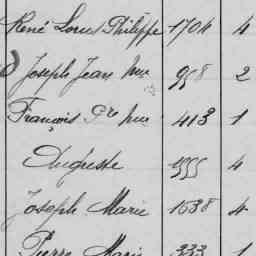 René Louis Philippe 1704 4
Joseph Jean Mie 958 2
François Pre Mie 413 1
Auguste 955 4
Joseph Marie 1638 4
Pierre Marie 333 1